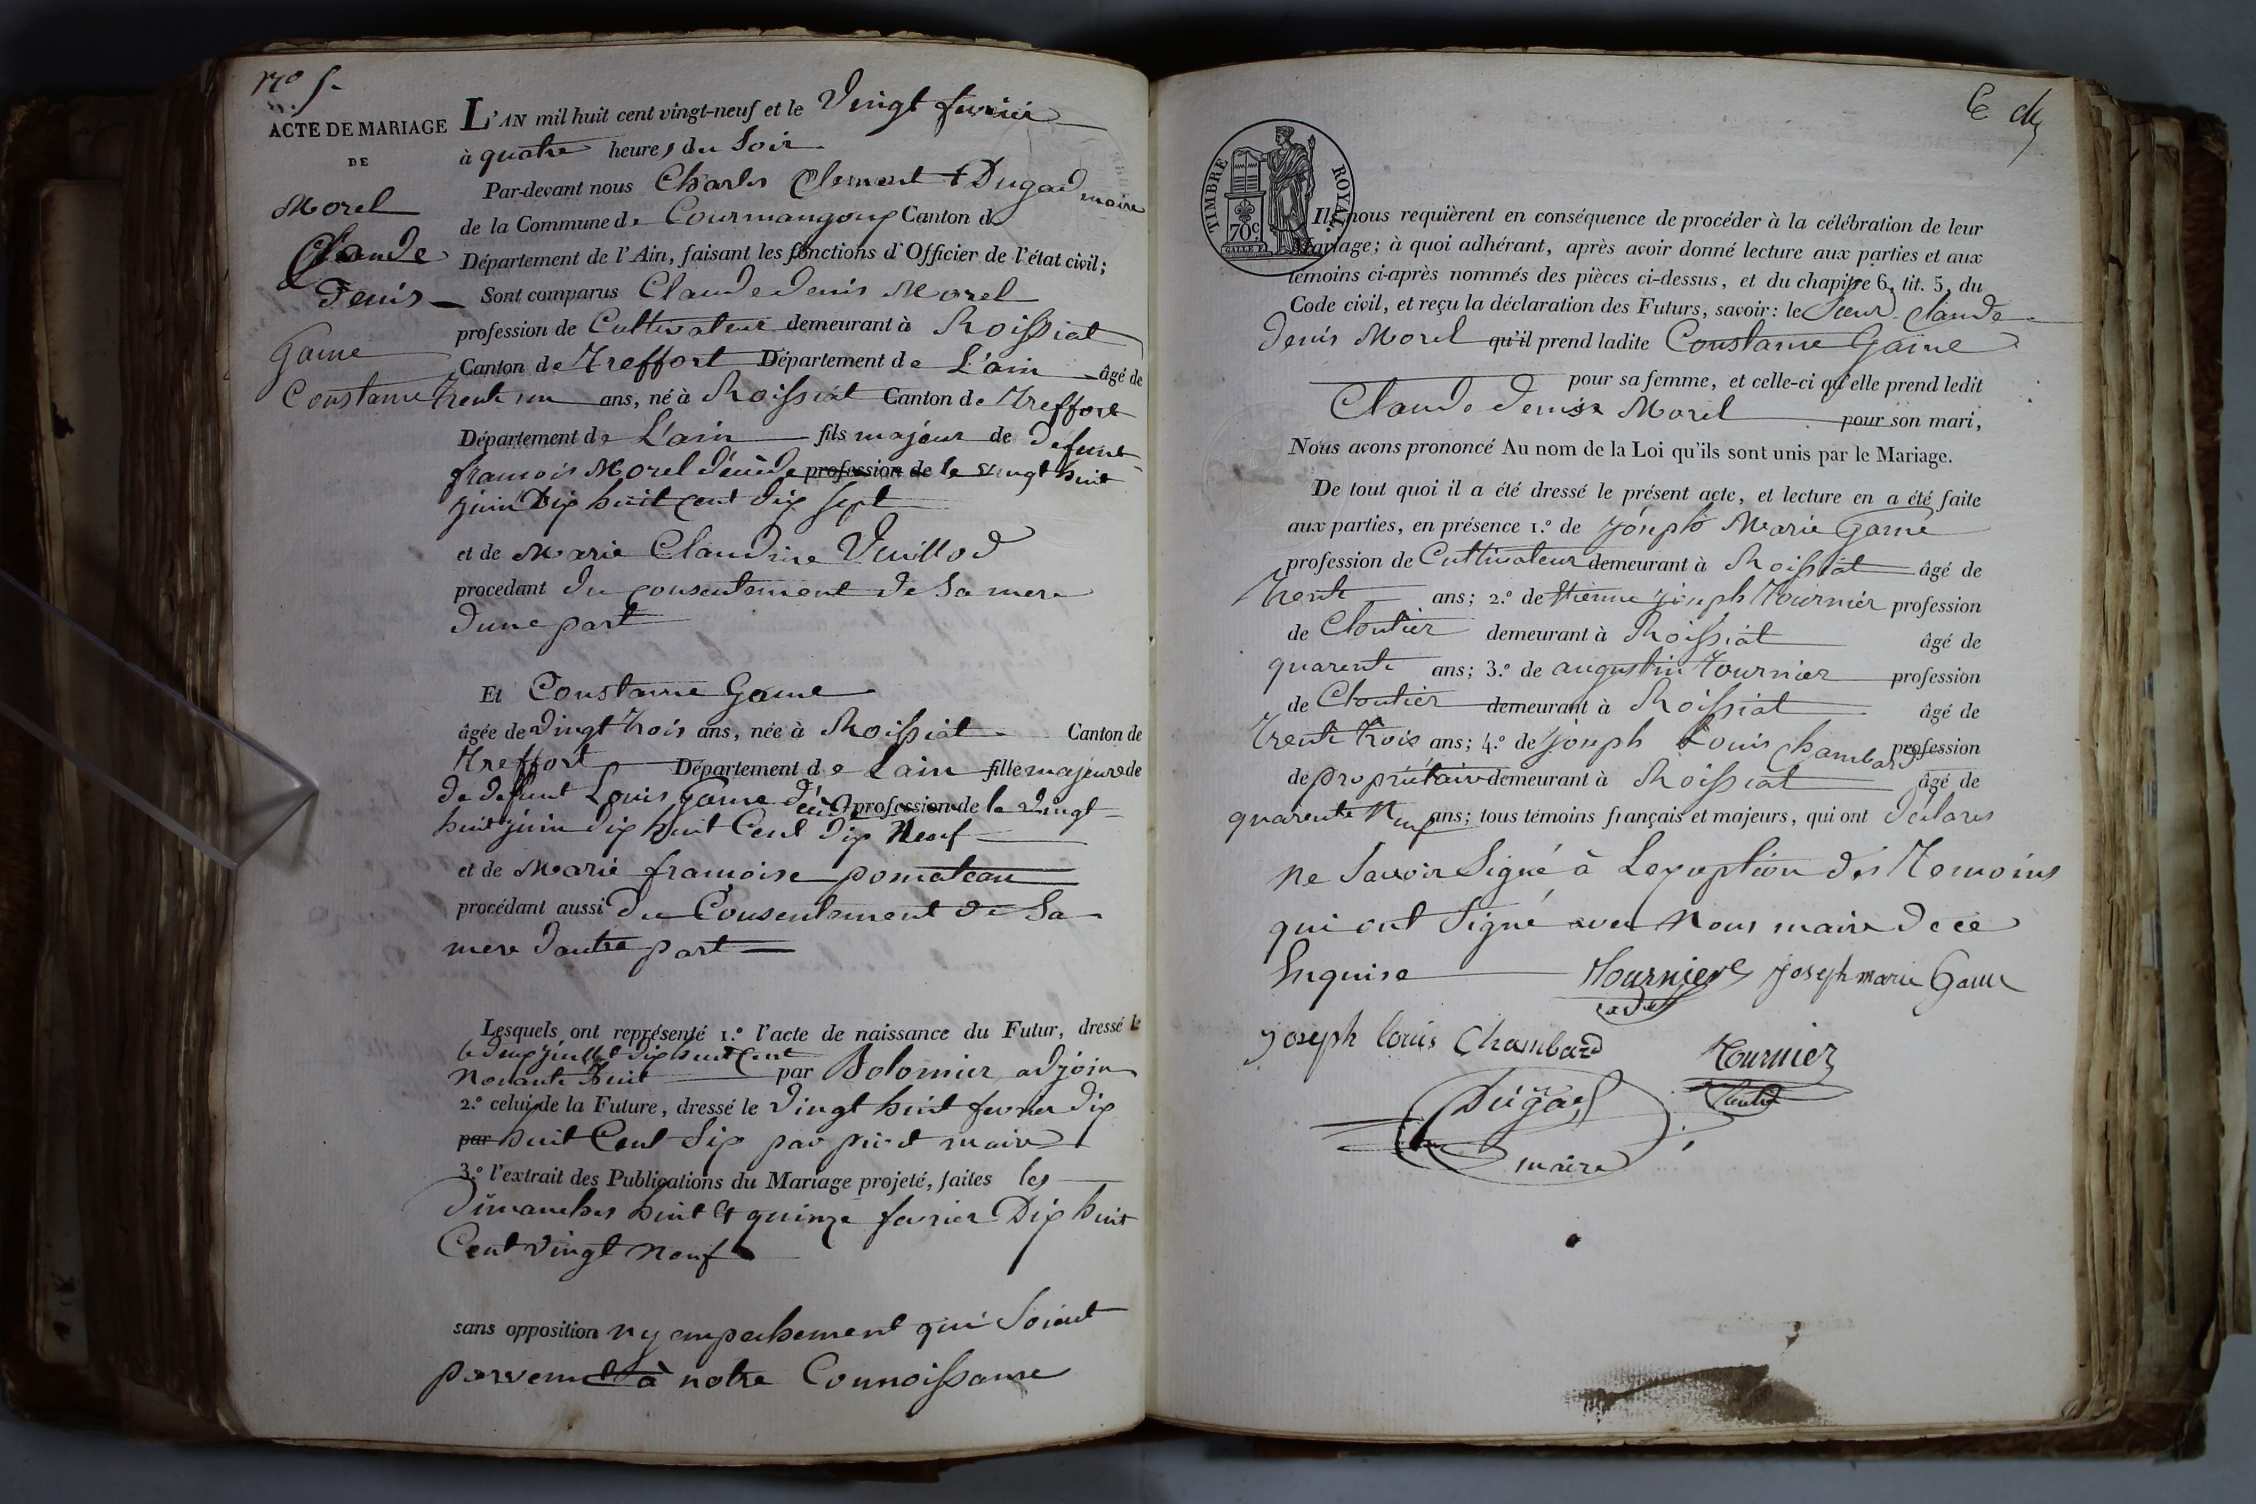 N.° 5.
ACTE DE MARIAGE
DE
Morel
Claude
Denis
Game
Constance
L'AN mil huit cent vingt-neuf et le Vingt fevrier
à quatre heures du Soir
Par-devant nous Charles Clement Dugad maire
de la Commune de Courmangoux Canton d
Département de l'Ain, faisant les fonctions d'Officier de l'état civil;
Sont comparus Claude denis Morel
profession de Cultivateur demeurant à Roissiat
Canton de Treffort Département de L'ain âgé de
trente un ans, né à Roissiat Canton de Treffort
Département de L'ain fils majeur de defunt
francois Morel décédé profession de le vingt huit
juin Dix huit cent dix sept
et de Marie Claudine Vuillod
procedant du consentement de Sa mere
dune part
Et Constance Game
âgée de vingt trois ans, née à Roissiat Canton de
Treffort Département de Lain fille majeure de
de defunt Louis Game décédé profession de le vingt
huit juin dix huit Cent dix Neuf
et de Marie francoise pomateau
procédant aussi du Consentement de Sa
mere dautre part
Lesquels ont représenté 1.° l'acte de naissance du Futur, dressé le
le deux juillet dix huit Cent
Nonante huit par Bolomier adjoin
2.° celui de la Future, dressé le vingt huit fevrier dix
par huit Cent Six par maire
3.° l'extrait des Publications du Mariage projeté, faites les
Dimanches huit et quinze fevrier Dix huit
Cent vingt neuf
sans opposition ny empechement qui Soient
parvenu à notre Connoissance
TIMBRE ROYAL
70 C.
Ils nous requièrent en conséquence de procéder à la célébration de leur
Mariage; à quoi adhérant, après avoir donné lecture aux parties et aux
témoins ci-après nommés des pièces ci-dessus, et du chapitre 6, tit. 5, du
Code civil, et reçu la déclaration des Futurs, savoir: le Sieur Claude
denis Morel qu'il prend ladite Constance Game
pour sa femme, et celle-ci qu'elle prend ledit
Claude denis Morel pour son mari,
Nous avons prononcé Au nom de la Loi qu'ils sont unis par le Mariage.
De tout quoi il a été dressé le présent acte, et lecture en a été faite
aux parties, en présence 1.° de joseph Marie Game
profession de Cultivateur demeurant à Roissiat âgé de
Trente ans; 2.° de Etienne joseph Tournier profession
de Cloutier demeurant à Roissiat âgé de
quarente ans; 3.° de augustin Tournier profession
de Cloutier demeurant à Roissiat âgé de
Trente Trois ans; 4.° de joseph Louis Chambard profession
de propriétaire demeurant à Roissiat âgé de
quarente Neuf ans; tous témoins français et majeurs, qui ont déclarés
ne Savoir Signé à Lexception des Temoins
qui ont Signé avec Nous maire de ce
Enquise Tournier Joseph marie Game
joseph louis Chambard Tournier
Dugad
maire